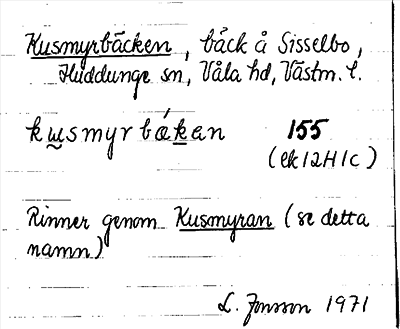 Kusmyrbäcken, bäck å Sisselbo,
Huddunge sn, Våla hd, Västm. l.
kusmyrbákan 155
(ek12H1c)
Rinner genom Kusmyran (se detta
namn)
L. Jonsson 1971